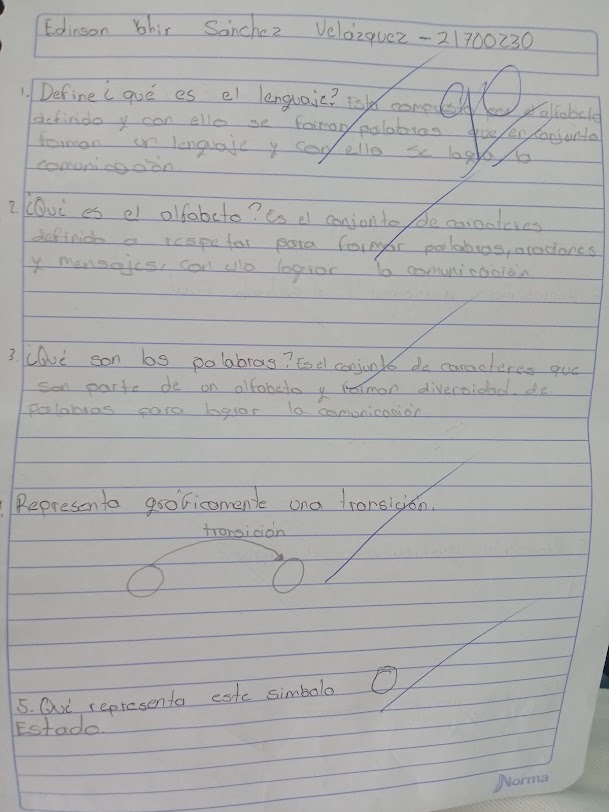 Edinson Yahir Sánchez Velázquez - 21700230
1. Define ¿qué es el lenguaje? Está compuesto por el alfabeto
definido y con ello se forman palabras que en conjunto
forman un lenguaje y con ello se logra la
comunicación
2. ¿Qué es el alfabeto? Es el conjunto de caracteres
definido a respetar para formar palabras, oraciones
y mensajes, con ello lograr la comunicación
3. ¿Qué son las palabras? Es el conjunto de caracteres que
son parte de un alfabeto y forman diversidad de
palabras para lograr la comunicación
Representa gráficamente una transición.
transición
5. Qué representa este simbolo
Estado.
Norma